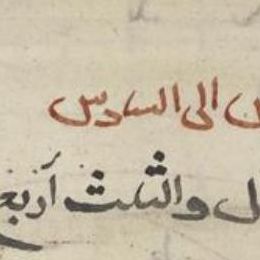 ن الى السادس
ل والثلث أربع